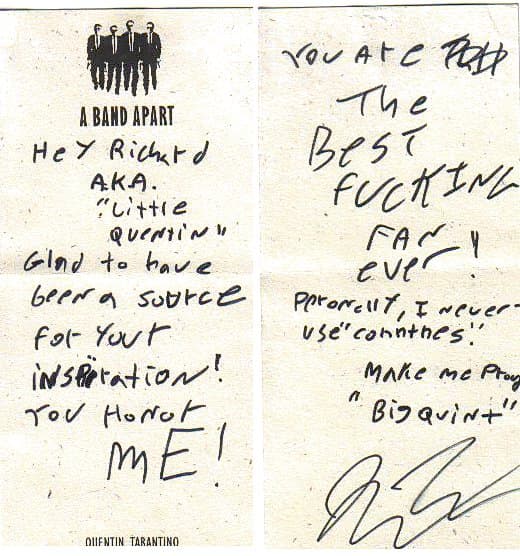 A BAND APART
HEY Richard
A.K.A.
"Little
QUENTIN"
Glad to have
been a source
For Your
inspiration!
You HONOR
ME!
QUENTIN TARANTINO
YOU ARE
The
BEST
FUCKING
FAN
ever!
Personally, I never
use
MAKE me Proud
"BIG QUINT"